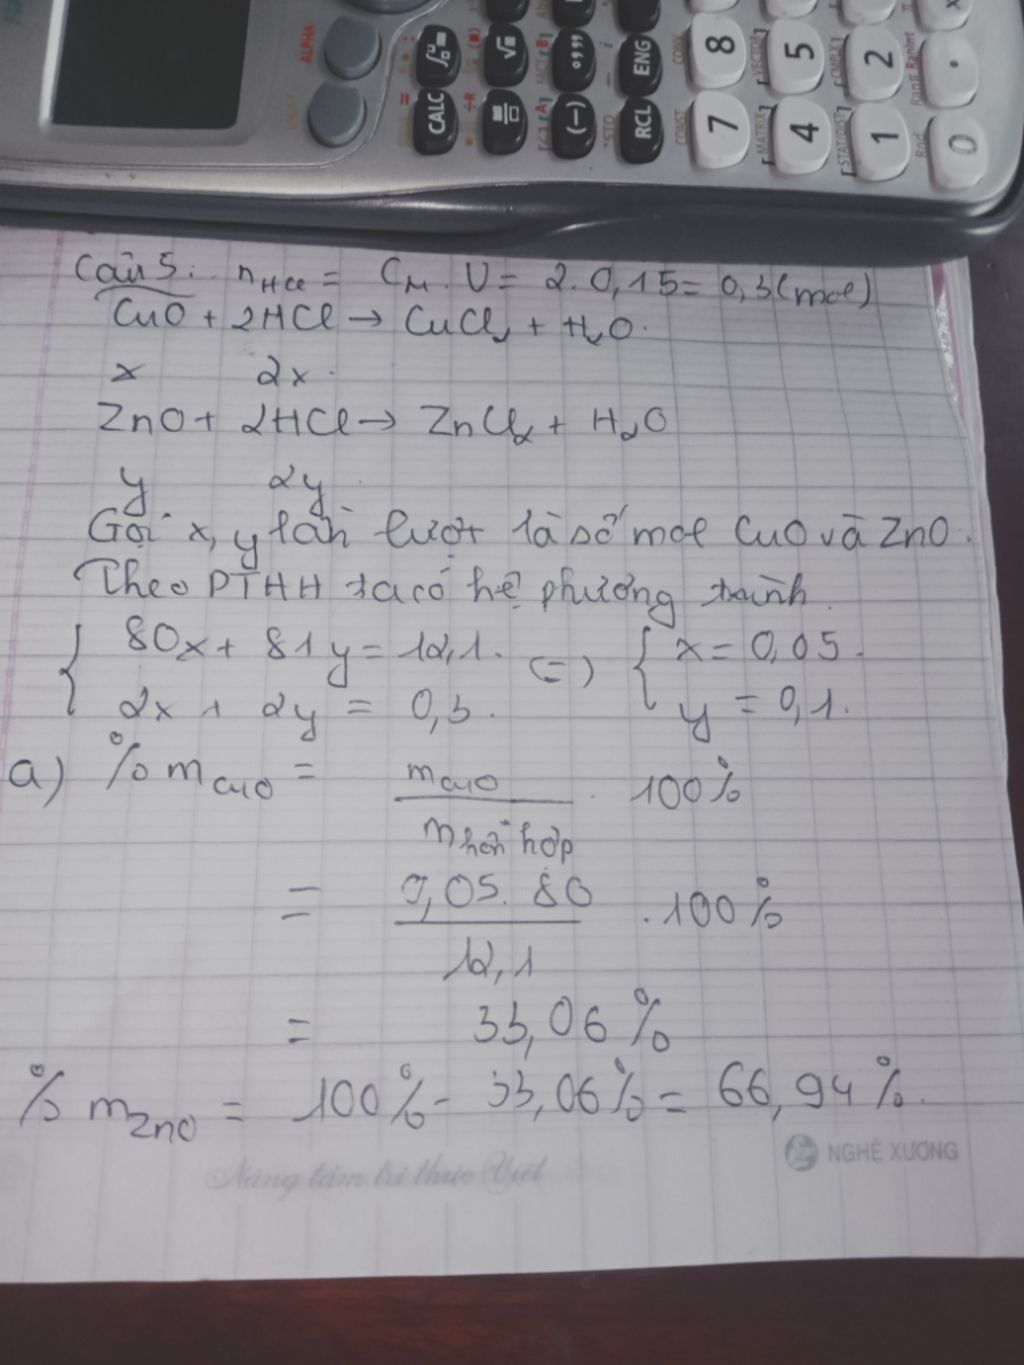 ALPHA
CALC
(-)
RCL
ENG
CONST
CONV
[MATRIX]
[VECTOR]
[STAT/DIST]
[CMPLX]
Rnd
Ran# RanInt
STO
7 8
4 5
1 2
0 .
Câu 5: nHCl = CM . V = 2.0,15 = 0,3 (mol)
CuO + 2HCl → CuCl2 + H2O.
x 2x.
ZnO + 2HCl → ZnCl2 + H2O
y 2y.
Gọi x, y lần lượt là số mol CuO và ZnO.
Theo PTHH ta có hệ phương trình.
{ 80x + 81y = 12,1. (=) { x = 0,05.
2x + 2y = 0,3. y = 0,1.
a) % mCuO = mCuO / mhỗn hợp . 100%
= 0,05.80 / 12,1 .100%
= 33,06%
% mZnO = 100% - 33,06% = 66,94%.
NGHỆ XƯƠNG
Nâng tầm tri thức Việt